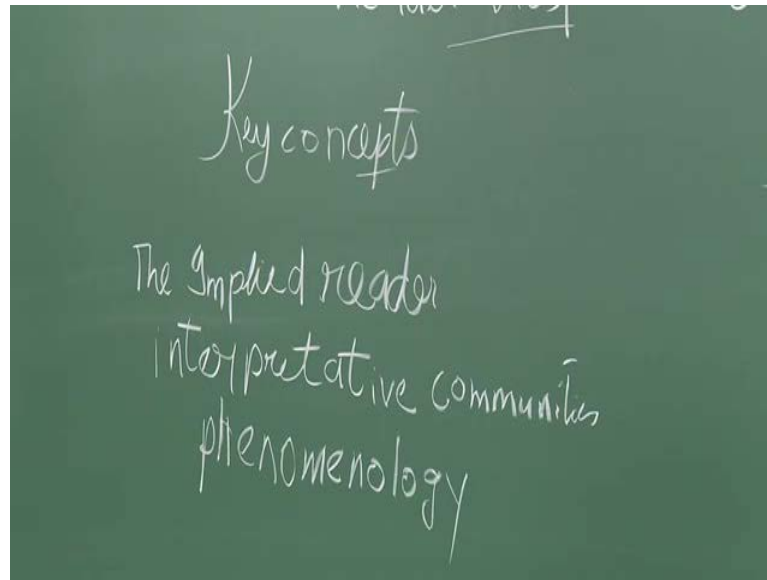 Key concepts
The Implied reader
interpretative communities
phenomenology